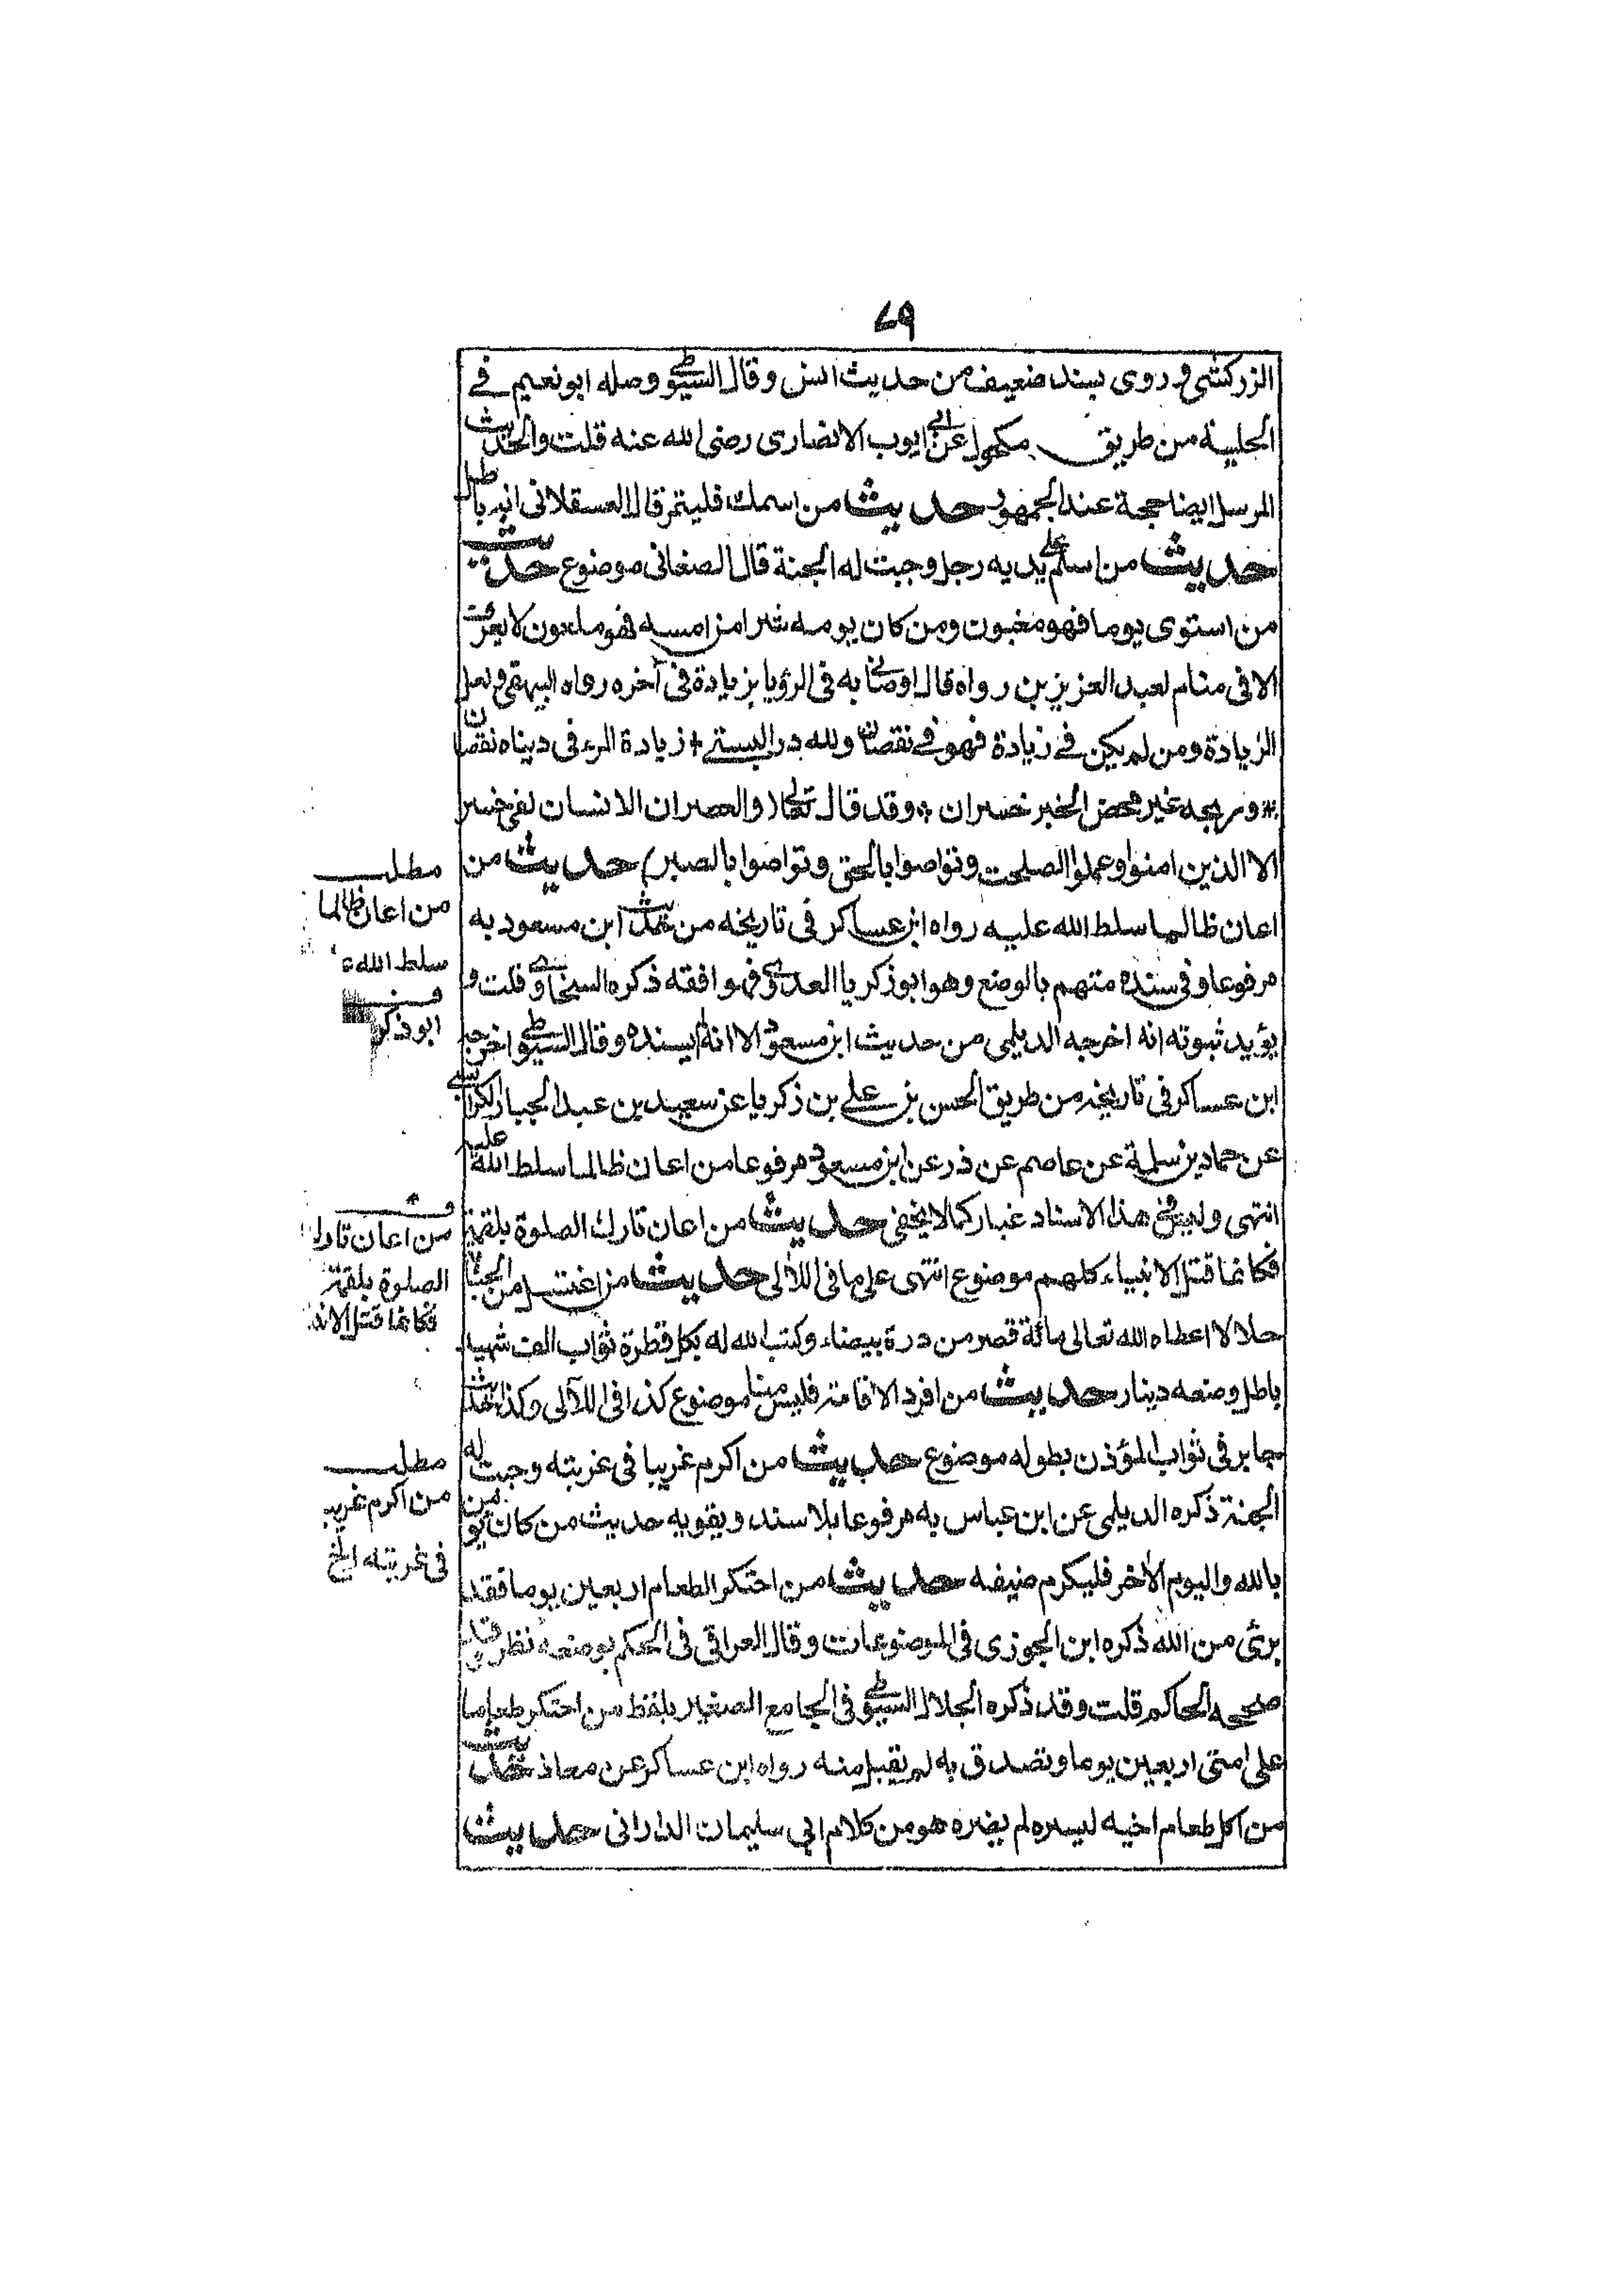 ٧٩
الزركشى و روى بسند ضعيف من حديث انس وقال السيوطى وصله ابو نعيم فى
الحلية من طريق مكحول عن ابى ايوب الانصارى رضى الله عنه قلت والحديث
المرسل ايضا حجة عند الجمهور حديث من اسمك فليتمر قال العسقلانى انه باطل
حديث من اسلم على يديه رجل وجبت له الجنة قال الصغانى موضوع حديث
من استوى يوما فهو مغبون ومن كان يومه شرا من امسه فهو ملعون لا يعرف
الا فى منام لعبد العزيز بن رواه قال اوصانى به فى الرؤيا بزيادة فى آخره رواه البيهقى ولعل
الزيادة ومن لم يكن فى زيادة فهو فى نقصان ولله در البستى + زيادة المرء فى ديناه نقصان
* وربحه غير محض الخير خسران * وقد قال تعالى (والعصر ان الانسان لفى خسر
الا الذين امنوا وعملوا الصلحت وتواصوا بالحق وتواصوا بالصبر) حديث من
اعان ظالما سلط الله عليه رواه ابن عساكر فى تاريخه من حديث ابن مسعود به
مرفوعا وفى سنده متهم بالوضع وهو ابو زكريا العدوى فهو افقه ذكره السخاوى قلت و
يؤيد ثبوته انه اخرجه الديلمى من حديث ابن مسعود الا انه لم يسنده وقال السيوطى اخرجه
ابن عساكر فى تاريخه من طريق الحسن بن على بن زكريا عن سعيد بن عبد الجبار الكرابسى
عن حماد بن سلمة عن عاصم عن ذر عن ابن مسعود مرفوعا من اعان ظالما سلط الله عليه
انتهى وليس فى هذا الاسناد غبار كما لا يخفى حديث من اعان تارك الصلوة بلقمة
فكانما قتل الانبياء كلهم موضوع انتهى على ما فى اللآلى حديث من اغتسل من الجنابة
حلالا اعطاه الله تعالى مائة قصر من درة بيضاء وكتب الله له بكل قطرة ثواب الف شهيد
باطل وضعه دينار حديث من افرد الاقامة فليس منا موضوع كذا فى اللآلى وكذا حديث
جابر فى ثواب المؤذن بطوله موضوع حديث من اكرم غريبا فى غربته وجبت له
الجنة ذكره الديلمى عن ابن عباس به مرفوعا بلا سند ويقويه حديث من كان يؤمن
بالله واليوم الاخر فليكرم ضيفه حديث من احتكر الطعام اربعين يوما فقد
برئ من الله ذكره ابن الجوزى فى الموضوعات وقال العراقى فى الحكم بوضعه نظر فقد
صححه الحاكم قلت وقد ذكره الجلال السيوطى فى الجامع الصغير بلفظ من احتكر طعاما
على امتى اربعين يوما وتصدق به لم يقبل منه رواه ابن عساكر عن معاذ حديث
من اكل طعام اخيه ليسره لم يضره هو من كلام ابى سليمان الدارانى حديث
مطلب
من اعان ظالما
سلط الله ع
ابو ذكر
من اعان تارك
الصلوة بلقمة
فكانما قتل الان
مطلب
من اكرم غريب
فى غربته الخ